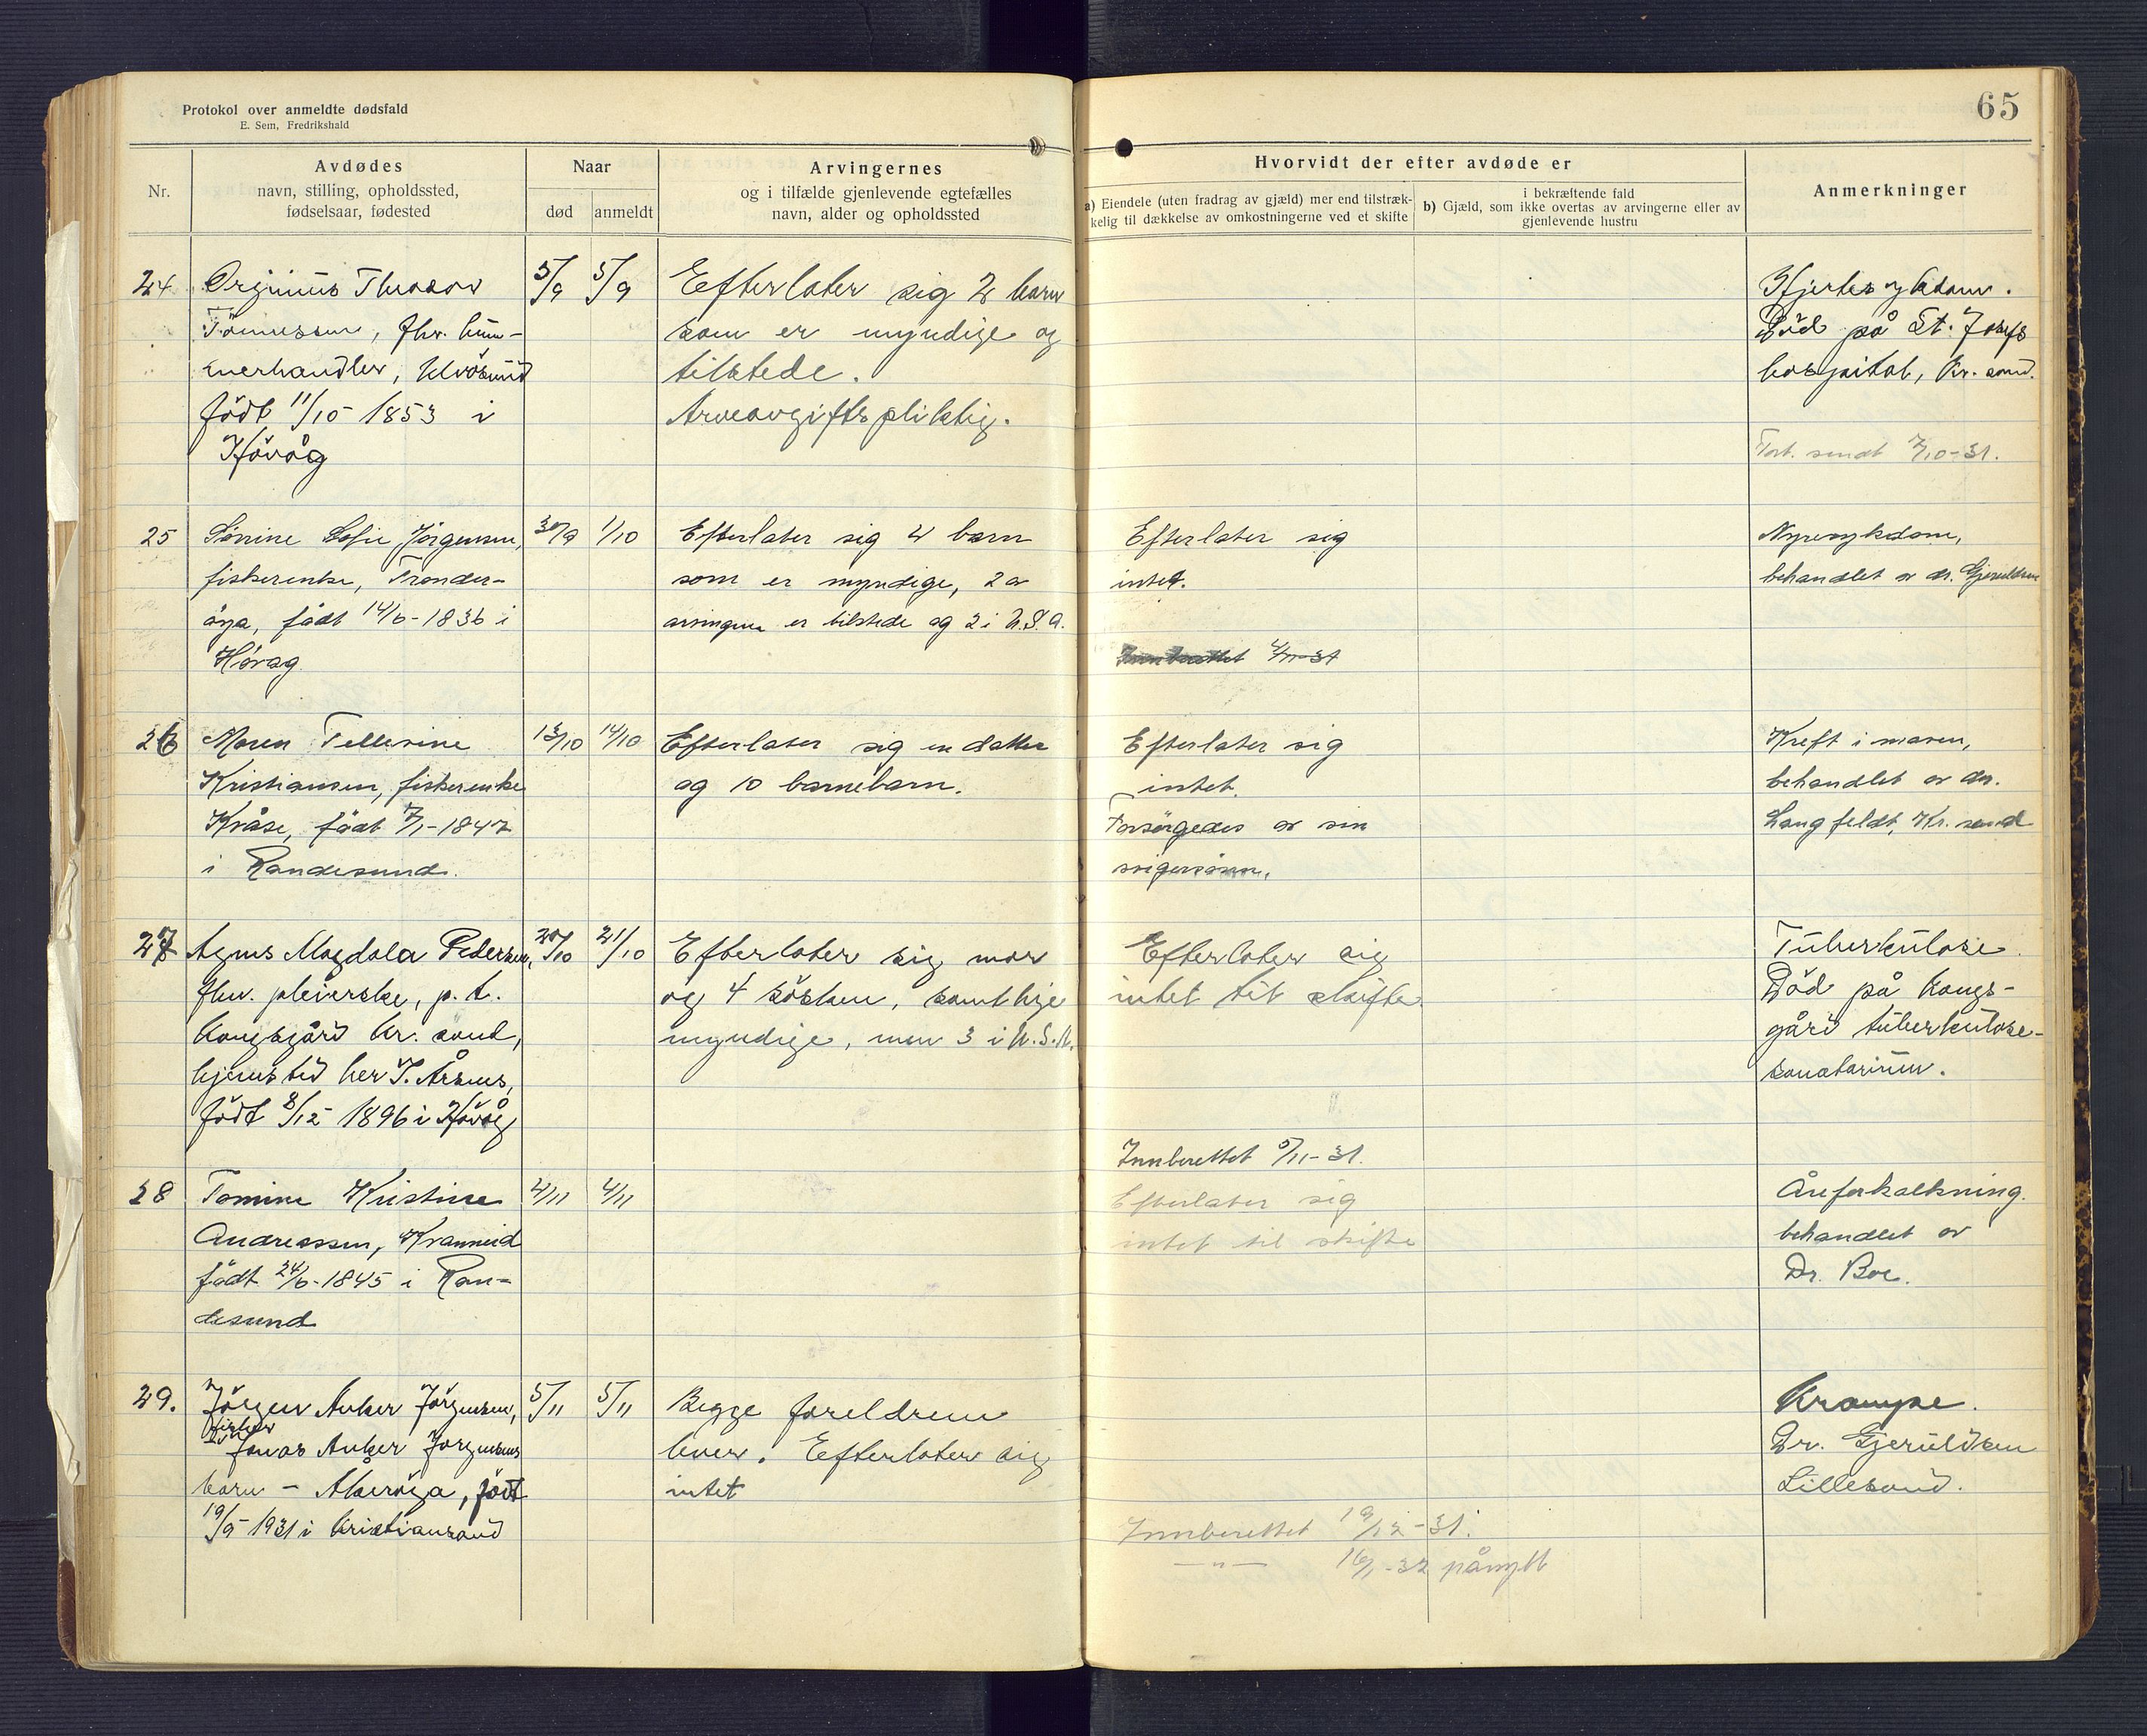 Protokol over anmeldte dødsfald
E. Sem, Fredrikshald
65
Nr.
Avdødes
navn, stilling, opholdssted,
fødselsaar, fødested
Naar
død
anmeldt
Arvingernes
og i tilfælde gjenlevende egtefælles
navn, alder og opholdssted
Hvorvidt der efter avdøde er
a) Eiendele (uten fradrag av gjæld) mer end tilstræk-
kelig til dækkelse av omkostningerne ved et skifte
i bekræftende fald
b) Gjæld, som ikke overtas av arvingerne eller av
gjenlevende hustru
Anmerkninger
24
Tönnessen, fhv. hum-
merhandler,
født 11/10 1853 i
Hövåg
5/9
5/9
Efterlater sig 2 barn
som er myndige og
tilstede.
Arveavgiftspliktig.
Hjertesykdom.
Död på St. Josefs
hospital, Kr.sand.
sendt 7/10-31.
25
Sørine Sofie Jörgensen,
fiskerenke, Trønder-
öya, född 14/6-1836 i
Hövåg
30/9
1/10
Efterlater sig 4 barn
som er myndige, 2 av
arvingene er tilstede og 2 i U.S.A.
Efterlater sig
intet.
Innberettet 4/11-31
Nyresykdom,
behandlet av dr. Gjeruldsen
26
Maren Tellevine
Kristiansen, fiskerenke
Kvåse, född 7/1-1847
i Randesund.
13/10
14/10
Efterlater sig en datter
og 10 barnebarn.
Efterlater sig
intet.
Forsörgedes av sin
svigersönn.
Kreft i maven,
behandlet av dr.
Langfeldt, Kr.sand
27
Agnes Magdala Pedersen,
fhv. pleierske, p.t.
Kongsgård Kr.sand,
hjemsted her
födt 8/12 1896 i Hövåg
20/10
21/10
Efterlater sig mor
og 4 sösken, samtlige
myndige, men 3 i U.S.A.
Efterlater sig
intet til skifte
Innberettet 5/11-31.
Tuberkulose
Död på Kongs-
gård tuberkulose-
sanatorium.
28
Tomine Kristine
Andreassen,
födt 24/6-1845 i Ran-
desund
4/11
4/11
Efterlater sig
intet til skifte
Åreforkalkning.
behandlet av
Dr. Boe.
29.
Jörgen Anker Jörgensen,
fisker
Jonas Anker Jörgensens
barn - Åkeröya, födt
19/9 1931 i Kristiansand
5/11
5/11
Begge foreldrene
lever. Efterlater sig
intet
Innberettet 19/12-31.
— " — 16/1-32 påny
Krampe.
Dr. Gjeruldsen
Lillesand.